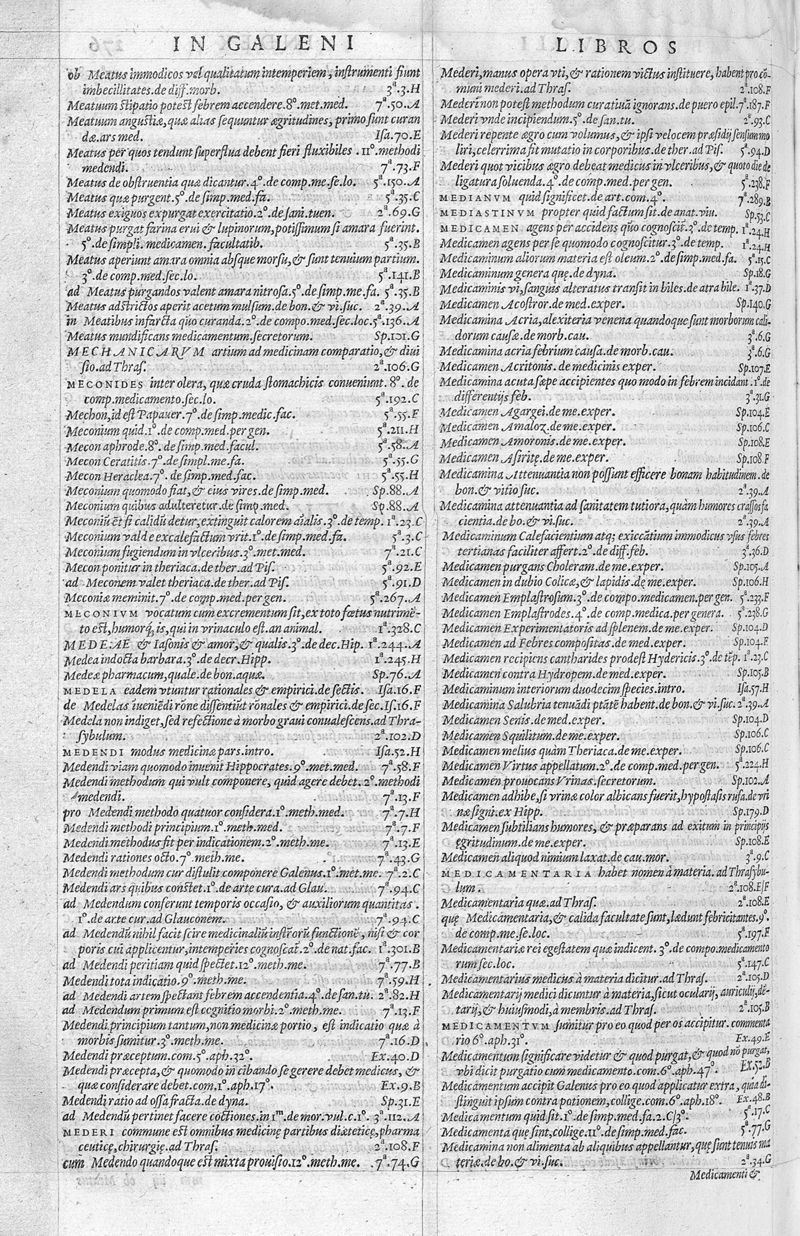 IN GALENI
ob Meatus immodicos vel qualitatum intemperiem, instrumenti fiunt
imbecillitates.de diff.morb. 3ª.3.H
Meatuum stipatio potest febrem accendere.8º.met.med. 7ª.50.A
Meatuum angustiæ, quæ alias sequuntur ægritudines, primo sunt curan
dæ.ars med. Isa.70.E
Meatus per quos tendunt superflua debent fieri fluxibiles.11º.methodi
medendi. 7ª.73.F
Meatus de obstruentia quæ dicantur.4º.de comp.me.se.lo. 5ª.150.A
Meatus quæ purgent.5º.de simp.med.fa. 5ª.35.C
Meatus exiguos expurgat exercitatio.2º.de sani.tuen. 2ª.69.G
Meatus purgat farina erui & lupinorum, potissimum si amara fuerint.
5º.de simpli.medicamen.facultatib. 5ª.35.B
Meatus aperiunt amara omnia absque morsu, & sunt tenuium partium.
3º.de comp.med.sec.lo. 5ª.141.B
ad Meatus purgandos valent amara nitrosa.5º.de simp.me.fa. 5ª.35.B
Meatus adstrictos aperit acetum mulsum.de bon.& vi.suc. 2ª.39.A
in Meatibus infarcta quo curanda.2º.de compo.med.sec.loc.5ª.136.A
Meatus mundificans medicamentum.secretorum. Sp.101.G
MECHANICARVM artium ad medicinam comparatio, & diui
sio.ad Thras. 2ª.106.G
MECONIDES inter olera, quæ cruda stomachicis conueniunt.8º.de
comp.medicamento.sec.lo. 5ª.192.C
Mechon, id est Papauer.7º.de simp.medic.fac. 5ª.55.F
Meconium quid.1º.de comp.med.per gen. 5ª.211.H
Mecon aphrode.8º.de simp.med.facul. 5ª.58.A
Mecon Ceratitis.7º.de simpl.me.fa. 5ª.55.G
Mecon Heraclea.7º.de simp.med.fac. 5ª.55.H
Meconium quomodo fiat, & eius vires.de simp.med. Sp.88.A
Meconium quibus adulteretur.de simp.med. Sp.88.A
Meconiū ēt si calidū detur, extinguit calorem aīalis.3º.de temp. 1ª.23.C
Meconium valde excalefactum vrit.1º.de simp.med.fa. 5ª.3.C
Meconium fugiendum in vlceribus.3º.met.med. 7ª.21.C
Mecon ponitur in theriaca.de ther.ad Pis. 5ª.92.E
ad Meconem valet theriaca.de ther.ad Pis. 5ª.91.D
Meconiæ meminit.7º.de comp.med.per gen. 5ª.267.A
MECONIVM vocatum cum excrementum sit, ex toto fœtus nutrimē-
to est, humorq́, is, qui in vrinaculo est.an animal. 1ª.328.C
MEDEAE & Iasonis & amor, & qualis.3º.de dec.Hip. 1ª.244.A
Medea indocta barbara.3º.de decr.Hipp. 1ª.245.H
Medeæ pharmacum, quale.de bon.aquæ. Sp.76.A
MEDELA eadem vtuntur rationales & empirici.de sectis. Isa.16.F
de Medelas īueniēdi rōne dissentiūt rōnales & empirici.de sec.Isa.16.F
Medela non indiget, sed refectione à morbo graui conualescens.ad Thra-
sybulum. 2ª.102.D
MEDENDI modus medicinæ pars.intro. Isa.52.H
Medendi viam quomodo inuenit Hippocrates.9º.met.med. 7ª.58.F
Medendi methodum qui vult componere, quid agere debet.2º.methodi
medendi. 7ª.13.F
pro Medendi methodo quatuor considera.1º.meth.med. 7ª.7.H
Medendi methodi principium.1º.meth.med. 7ª.7.F
Medendi methodus fit per indicationem.2º.meth.me. 7ª.13.E
Medendi rationes octo.7º.meth.me. 7ª.43.G
Medendi methodum cur distulit componere Galenus.1º.met.me. 7ª.2.C
Medendi ars quibus constet.1º.de arte cura.ad Glau. 7ª.94.C
ad Medendum conferunt temporis occasio, & auxiliorum quantitas.
1º.de arte cur.ad Glauconem. 7ª.94.C
ad Medendū nihil facit scire medicinaliū instrōrū functionē, nisi & cor
poris cui applicentur, intemperies cognoscat̄.2º.de nat.fac. 1ª.301.B
ad Medendi peritiam quid spectet.12º.meth.me. 7ª.77.B
Medendi tota indicatio.9º.meth.me. 7ª.59.H
ad Medendi artem spectant febrem accendentia.4º.de san.tū. 2ª.82.H
ad Medendum primum est cognitio morbi.2º.meth.me. 7ª.13.F
Medendi principium tantum, non medicinæ portio, est indicatio quæ à
morbis sumitur.3º.meth.me. 7ª.16.D
Medendi præceptum.com.5º.aph.32º. Ex.40.D
Medendi præcepta, & quomodo in cibando se gerere debet medicus, &
quæ considerare debet.com.1º.aph.17º. Ex.9.B
Medendi ratio ad ossa fracta.de dyna. Sp.31.E
ad Medendū pertinet facere coctiones.in 1ᵐ.de mor.vul.c.1º. 3ª.112.A
MEDERI commune est omnibus medicinę partibus diæteticę, pharma
ceuticę, chirurgię.ad Thras. 2ª.108.F
cum Medendo quandoque est mixta prouisio.12º.meth.me. 7ª.74.G
LIBROS
Mederi, manus opera vti, & rationem victus instituere, habent pro cō-
muni mederi.ad Thras. 2ª.108.F
Mederi non potest methodum curatiuā ignorans.de puero epil.7ª.187.F
Mederi vnde incipiendum.5º.de san.tu. 2ª.93.C
Mederi repente ægro cum volumus, & ipsi velocem præsidij sensum mo
liri, celerrima fit mutatio in corporibus.de ther.ad Pis. 5ª.94.D
Mederi quot vicibus ægro debeat medicus in vlceribus, & quoto die de
ligatura soluenda.4º.de comp.med.per gen. 5ª.238.F
MEDIANVM quid significet.de art.com.4º. 7ª.289.B
MEDIASTINVM propter quid factum sit.de anat.viu. Sp.53.C
MEDICAMEN agens per accidens quo cognoscit̄.3º.de temp. 1ª.24.H
Medicamen agens per se quomodo cognoscitur.3º.de temp. 1ª.24.H
Medicaminum aliorum materia est oleum.2º.de simp.med.fa. 5ª.15.C
Medicaminum genera quę.de dyna. Sp.18.G
Medicaminis vi, sanguis alteratus transit in biles.de atra bile. 1ª.37.D
Medicamen Acostror.de med.exper. Sp.140.G
Medicamina Acria, alexiteria venena quandoque sunt morborum cali-
dorum causæ.de morb.cau. 3ª.6.G
Medicamina acria febrium causa.de morb.cau. 3ª.6.G
Medicamen Acritonis.de medicinis exper. Sp.107.E
Medicamina acuta sæpe accipientes quo modo in febrem incidant.1º.de
differentijs feb. 3ª.31.G
Medicamen Agargei.de me.exper. Sp.104.E
Medicamen Amaloz.de me.exper. Sp.106.C
Medicamen Amoronis.de me.exper. Sp.108.E
Medicamen Asiritę.de me.exper. Sp.108.F
Medicamina Attenuantia non possunt efficere bonam habitudinem.de
bon.& vitio suc. 2ª.39.A
Medicamina attenuantia ad sanitatem tutiora, quàm humores crassos fa
cientia.de bo.& vi.suc. 2ª.39.A
Medicaminum Calefacientium atq; exiccātium immodicus vsus febres
tertianas faciliter affert.2º.de diff.feb. 3ª.36.D
Medicamen purgans Choleram.de me.exper. Sp.105.A
Medicamen in dubio Colicæ, & lapidis.de me.exper. Sp.106.H
Medicamen Emplastrosum.3º.de compo.medicamen.per gen. 5ª.233.F
Medicamen Emplastrodes.4º.de comp.medica.per genera. 5ª.238.G
Medicamen Experimentatoris ad splenem.de me.exper. Sp.104.D
Medicamen ad Febres compositas.de med.exper. Sp.104.F
Medicamen recipiens cantharides prodest Hydericis.3º.de tēp. 1ª.23.C
Medicamen contra Hydropem.de med.exper. Sp.105.B
Medicaminum interiorum duodecim species.intro. Isa.57.H
Medicamina Salubria tenuādi ptātē habent.de bon.& vi.suc. 2ª.39.A
Medicamen Senis.de med.exper. Sp.104.D
Medicamen Squilitum.de me.exper. Sp.106.C
Medicamen melius quàm Theriaca.de me.exper. Sp.106.C
Medicamen Virtus appellatum.2º.de comp.med.per gen. 5ª.224.H
Medicamen prouocans Vrinas.secretorum. Sp.102.A
Medicamen adhibe, si vrinæ color albicans fuerit, hypostasis rufa.de vri
næ signi.ex Hipp. Sp.179.D
Medicamen subtilians humores, & præparans ad exitum in principijs
ęgritudinum.de me.exper. Sp.108.E
Medicamen aliquod nimium laxat.de cau.mor. 3ª.9.C
MEDICAMENTARIA habet nomen à materia.ad Thrasybu-
lum. 2ª.108.E/F
Medicamentaria quæ.ad Thras. 2ª.108.E
quę Medicamentaria, & calida facultate sunt, lædunt febricitantes.9º.
de comp.me.sec.loc. 5ª.197.F
Medicamentariæ rei egestatem quæ indicent.3º.de compo.medicamento
rum sec.loc. 5ª.147.C
Medicamentarius medicus à materia dicitur.ad Thras. 2ª.105.D
Medicamentarij medici dicuntur à materia, sicut ocularij, auricularij, dē-
tarij, & huiusmodi, à membris.ad Thras. 2ª.105.B
MEDICAMENTVM sumitur pro eo quod per os accipitur.commenta
rio 6º.aph.31º. Ex.49.E
Medicamentum significare videtur & quod purgat, & quod nō purgat,
vbi dicit purgatio cum medicamento.com.6º.aph.47º. Ex.52.D
Medicamentum accipit Galenus pro eo quod applicatur extra, quia di-
stinguit ipsum contra potionem, collige.com.6º.aph.18º. Ex.48.B
Medicamentum quid sit.1º.de simp.med.fa.2.C/3º. 5ª.17.C
Medicamenta quę sint, collige.11º.de simp.med.fac. 5ª.77.G
Medicamina non alimenta ab aliquibus appellantur, quę sunt tenuis ma
teriæ.de bo.& vi.suc. 2ª.34.G
Medicamenti &